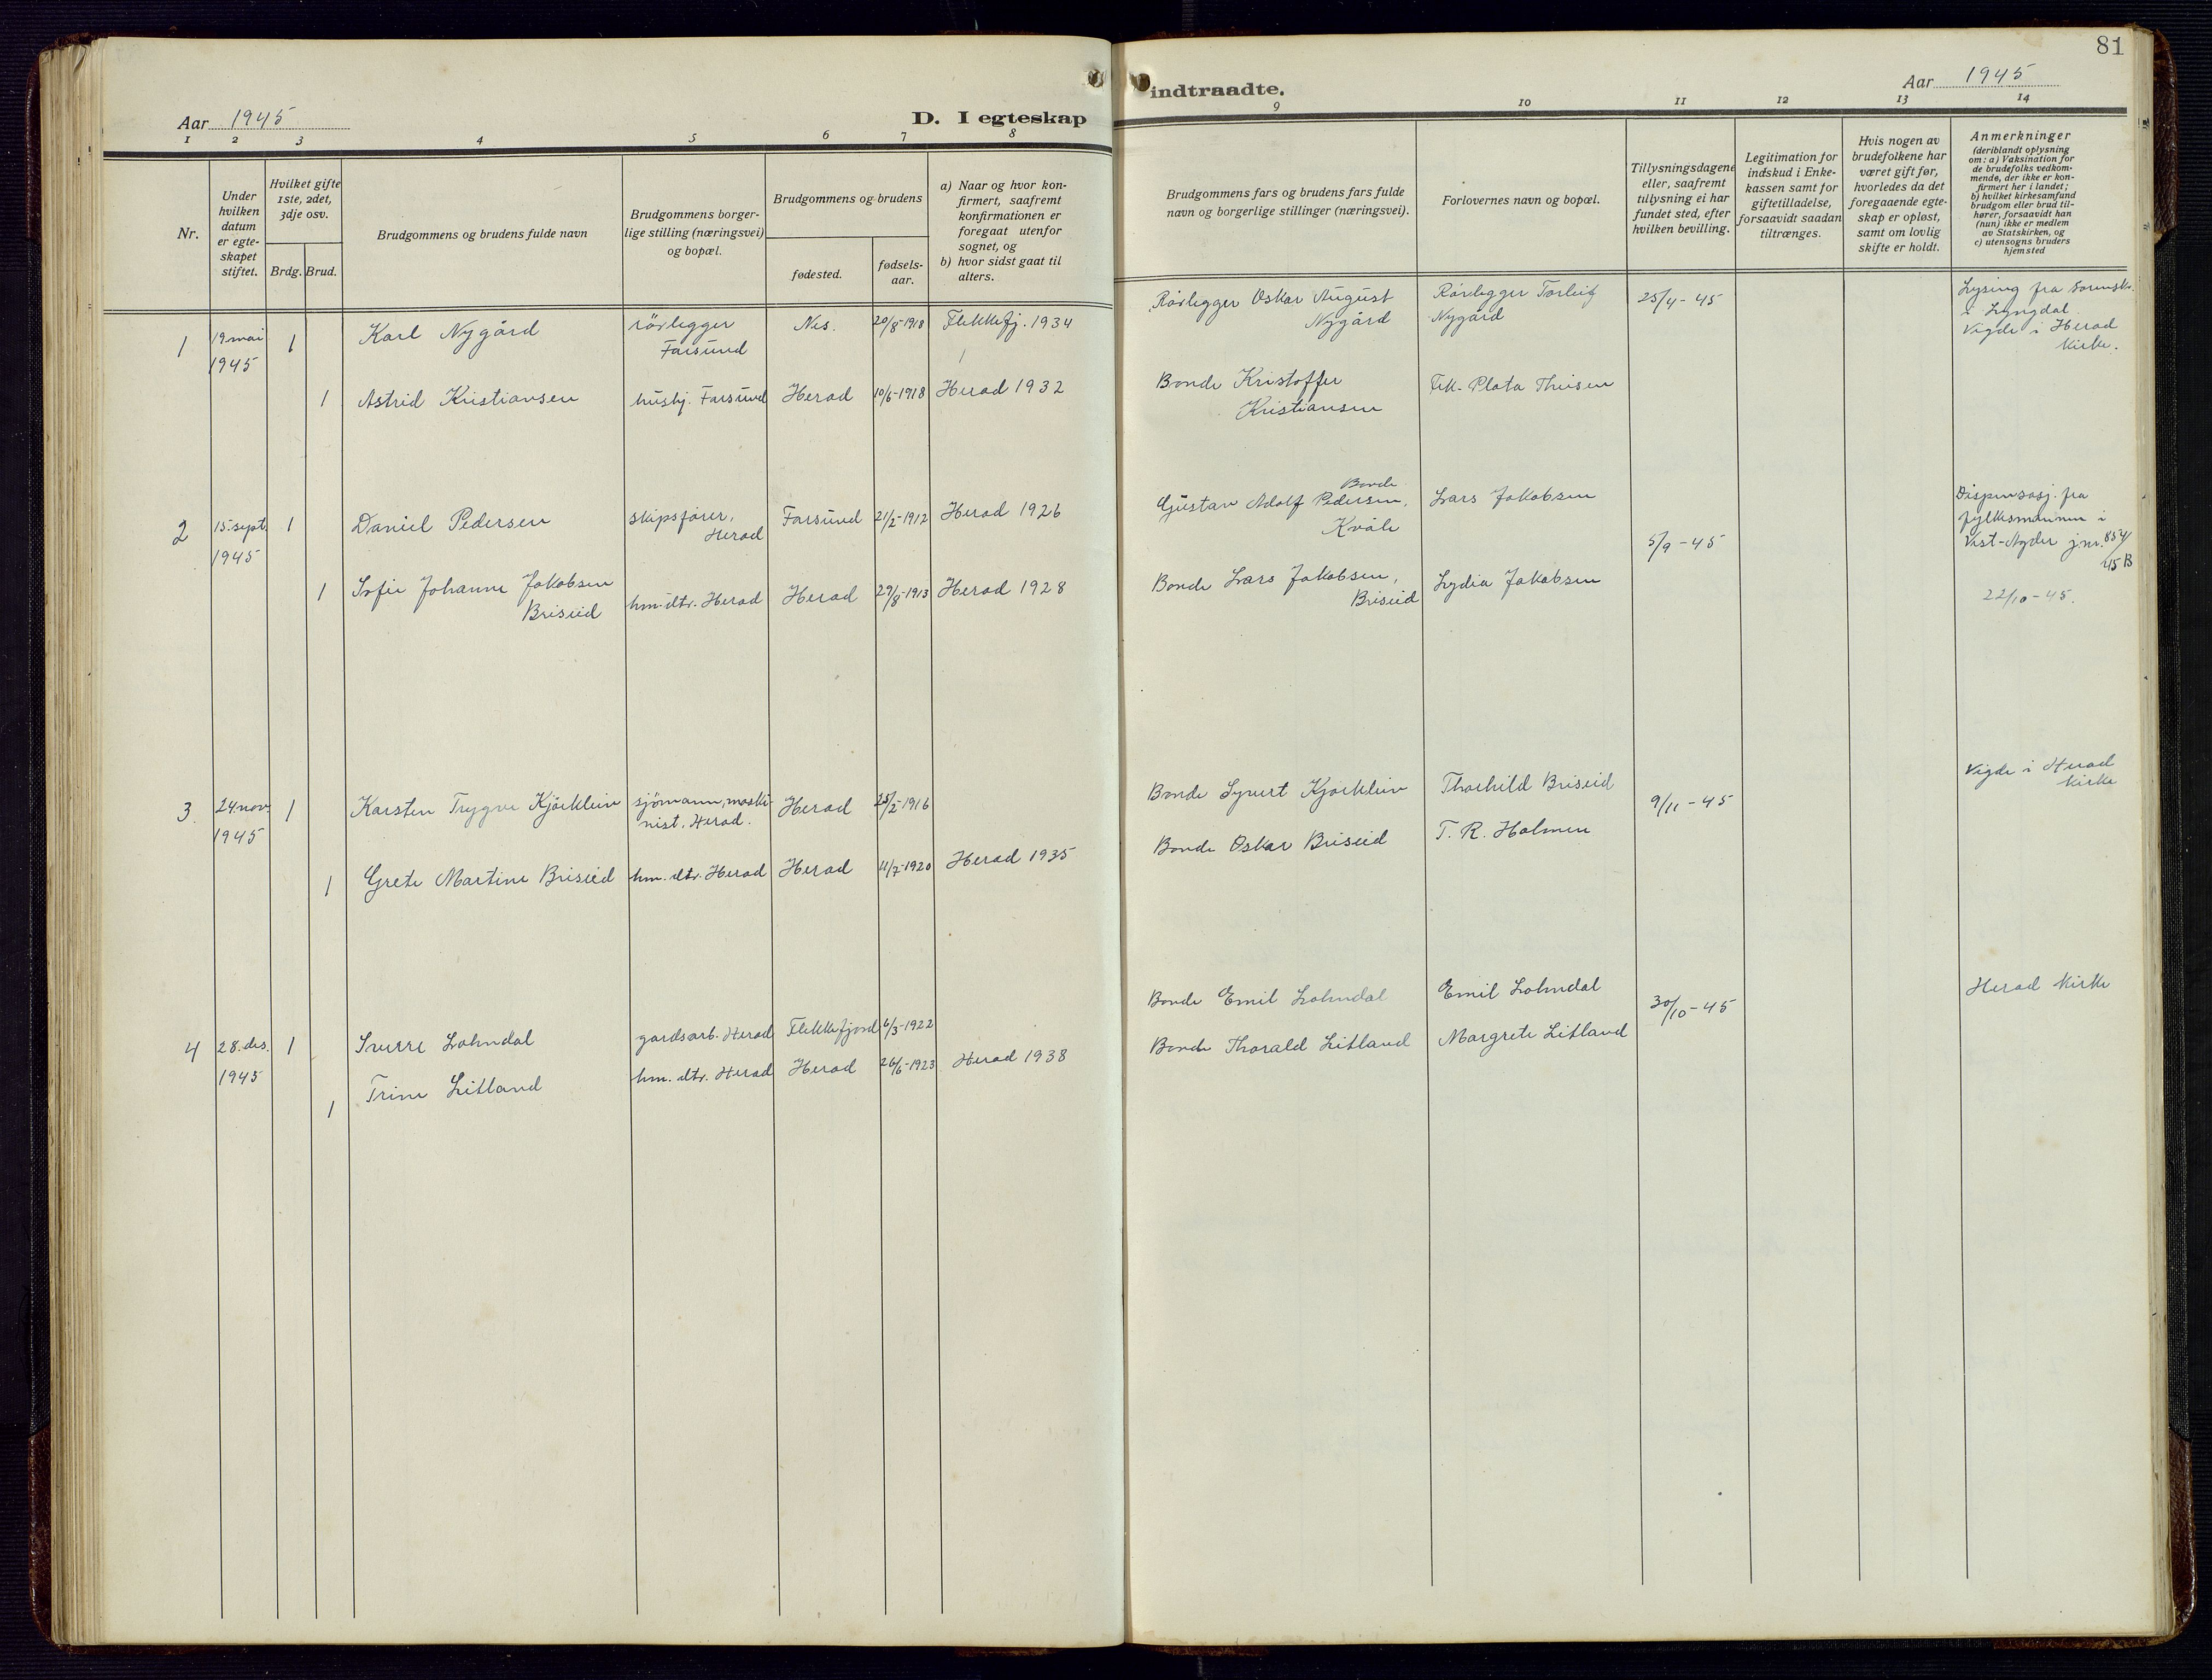 Aar 1945
D. I egteskap
1 2 3 4 5 6 7 8
Nr.
Under hvilken datum er egte-skapet stiftet.
Hvilket gifte 1ste, 2det, 3dje osv.
Brdg. Brud.
Brudgommens og brudens fulde navn
Brudgommens borger-
lige stilling (næringsvei)
og bopæl.
Brudgommens og brudens
fødested.
fødsels-
aar.
a) Naar og hvor kon-
firmert, saafremt
konfirmationen er
foregaat utenfor
sognet, og
b) hvor sidst gaat til
alters.
1 19 mai 1945 1 Karl Nygård rørlegger Farsund Nes. 20/8-1918 Flekkefj. 1934
1 Astrid Kristiansen hushj. Farsund Herad 10/6-1918 Herad 1932
2 15. sept. 1945 1 Daniel Pedersen skipsfører, Herad Farsund 21/2-1912 Herad 1926
1 Sofie Johanne Jakobsen Briseid hm. dtr. Herad Herad 29/8-1913 Herad 1928
3 24. nov. 1945 1 Karsten Trygve Kjørkleiv sjømann, maski-nist. Herad. Herad 25/2-1916
1 Grete Martine Briseid hm. dtr. Herad Herad 11/7-1920 Herad 1935
4 28. des. 1945 1 Sverre Lohndal gardsarb. Herad Flekkefjord 6/3-1922
1 Trine Litland hm. dtr. Herad Herad 26/6-1923 Herad 1938
81
indtraadte.
Aar 1945
9 10 11 12 13 14
Brudgommens fars og brudens fars fulde
navn og borgerlige stillinger (næringsvei).
Forlovernes navn og bopæl.
Tillysningsdagene
eller, saafremt
tillysning ei har
fundet sted, efter
hvilken bevilling.
Legitimation for
indskud i Enke-
kassen samt for
giftetilladelse,
forsaavidt saadan
tiltrænges.
Hvis nogen av
brudefolkene har
været gift før,
hvorledes da det
foregaaende egte-
skap er opløst,
samt om lovlig
skifte er holdt.
Anmerkninger
(deriblandt oplysning
om: a) Vaksination for
de brudefolks vedkom-
mende, der ikke er kon-
firmert her i landet;
b) hvilket kirkesamfund
brudgom eller brud til-
hører, forsaavidt han
(hun) ikke er medlem
av Statskirken, og
c) utensogns bruders
hjemsted
Rørlegger Oskar August Nygård Rørlegger Torleif Nygård 25/4-45 Lysing fra Sorensk. i Lyngdal. Vigde i Herad Kirke.
Bonde Kristoffer Kristiansen Frk. Plata Theisen
Bonde Gustav Adolf Pedersen, Kvåle Lars Jakobsen 5/9-45 Dispensasj. fra fylkesmannen i Vest-Agder j.nr. 854/45 B
Bonde Lars Jakobsen, Briseid Lydia Jakobsen 22/10-45.
Bonde Syvert Kjørkleiv Thorhild Briseid 9/11-45 Vigde i Herad Kirke
Bonde Oskar Briseid T. R. Holmen
Bonde Emil Lohndal Emil Lohndal 30/10-45 Herad Kirke
Bonde Thorald Litland Margrete Litland